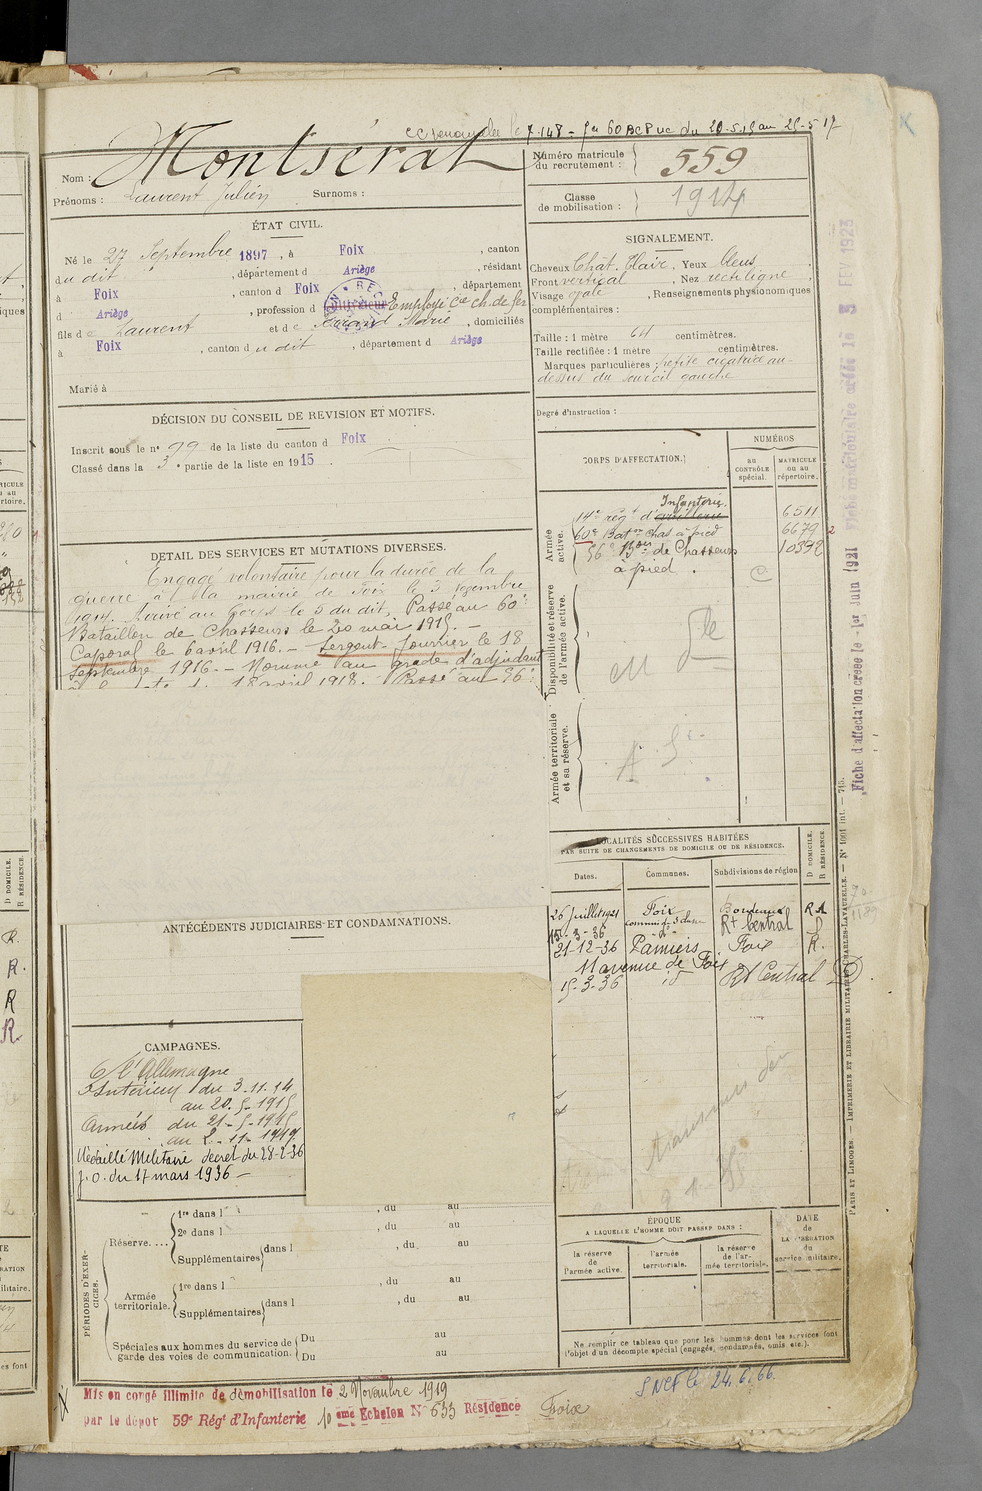 7.1.48 = fer 60 BCP uc du 20.5.15 au 25-5-17
Nom : Montsérat
Prénoms : Laurent Julien Surnoms :
Numéro matricule du recrutement : 559
Classe de mobilisation : 1914
ÉTAT CIVIL.
Né le 27 Septembre 1897, à Foix, canton
du dit, département d Ariège, résidant
à Foix, canton d Foix, département
d Ariège, profession d Employé Cie ch. de fer
fils de Laurent et de Marie, domiciliés
à Foix, canton du dit, département d Ariège
Marié à
SIGNALEMENT.
Cheveux Chât. Clair, Yeux bleus
Front vertical, Nez rectiligne
Visage ovale, Renseignements physionomiques
complémentaires :
Taille : 1 mètre 64 centimètres.
Taille rectifiée : 1 mètre centimètres.
Marques particulières : petite cicatrice au-
dessus du sourcil gauche
Degré d'instruction :
DÉCISION DU CONSEIL DE REVISION ET MOTIFS.
Inscrit sous le n° 99 de la liste du canton d Foix
Classé dans la 3e partie de la liste en 1915.
CORPS D'AFFECTATION.
NUMÉROS
AU CONTRÔLE spécial.
MATRICULE ou au répertoire.
Armée active.
Infanterie.
14e rég t d'artillerie 6511
60e Bat on Chas à pied 6679 2
56e Bon de Chasseurs 10372
à pied.
Disponibilité et réserve de l'armée active.
Armée territoriale et sa réserve.
DETAIL DES SERVICES ET MUTATIONS DIVERSES.
Engagé volontaire pour la durée de la
guerre à la mairie de Foix le 3 9bre
1914. Arrivé au Corps le 5 du dit. Passé au 60e
Bataillon de Chasseurs le 20 mai 1915. -
Caporal le 6 avril 1916. - Sergent-Fourrier le 18
Septembre 1916. - Nommé au grade d'adjudant
18 avril 1918. Passé au 56e
LOCALITÉS SUCCESSIVES HABITÉES
PAR SUITE DE CHANGEMENTS DE DOMICILE OU DE RÉSIDENCE.
Dates. Communes. Subdivisions de région
D DOMICILE. R RÉSIDENCE.
26 Juillet 1921 Foix Bordeaux R
15-3-36 Rt Central
21-12-36 Pamiers Foix R.
11 avenue de Foix
15-3-36 Rt Central D
ANTÉCÉDENTS JUDICIAIRES ET CONDAMNATIONS.
CAMPAGNES.
C/ l'Allemagne
Intérieur du 3-11-14
au 20-5-1915
Armées du 21-5-1915
au 2-11-1919
Médaille Militaire décret du 28-2-36
J.O. du 17 mars 1936 -
PÉRIODES D'EXERCICES.
Réserve....
1re dans l , du au
2e dans l , du au
Supplémentaires dans l , du au
Armée territoriale.
1re dans l , du au
Supplémentaires dans l , du au
Spéciales aux hommes du service de garde des voies de communication.
Du au
Du au
ÉPOQUE
A LAQUELLE L'HOMME DOIT PASSER DANS :
la réserve de l'armée active.
l'armée territoriale.
la réserve de l'armée territoriale.
DATE de LA LIBÉRATION du service militaire.
Ne remplir ce tableau que pour les hommes dont les services font
l'objet d'un décompte spécial (engagés, condamnés, omis etc.).
SNCF le 24.6.66.
Mis en congé illimité de démobilisation le 2 Novembre 1919
par le dépôt 59e Régt d'Infanterie 10 eme Echelon N° 633 Résidence Foix
Fiche matriculaire créée le 3 FEV 1923
Fiche d'affectation créée le 1er Juin 1921
PARIS ET LIMOGES. — IMPRIMERIE ET LIBRAIRIE MILITAIRE CHARLES-LAVAUZELLE. — N° 1001 int. — 715.